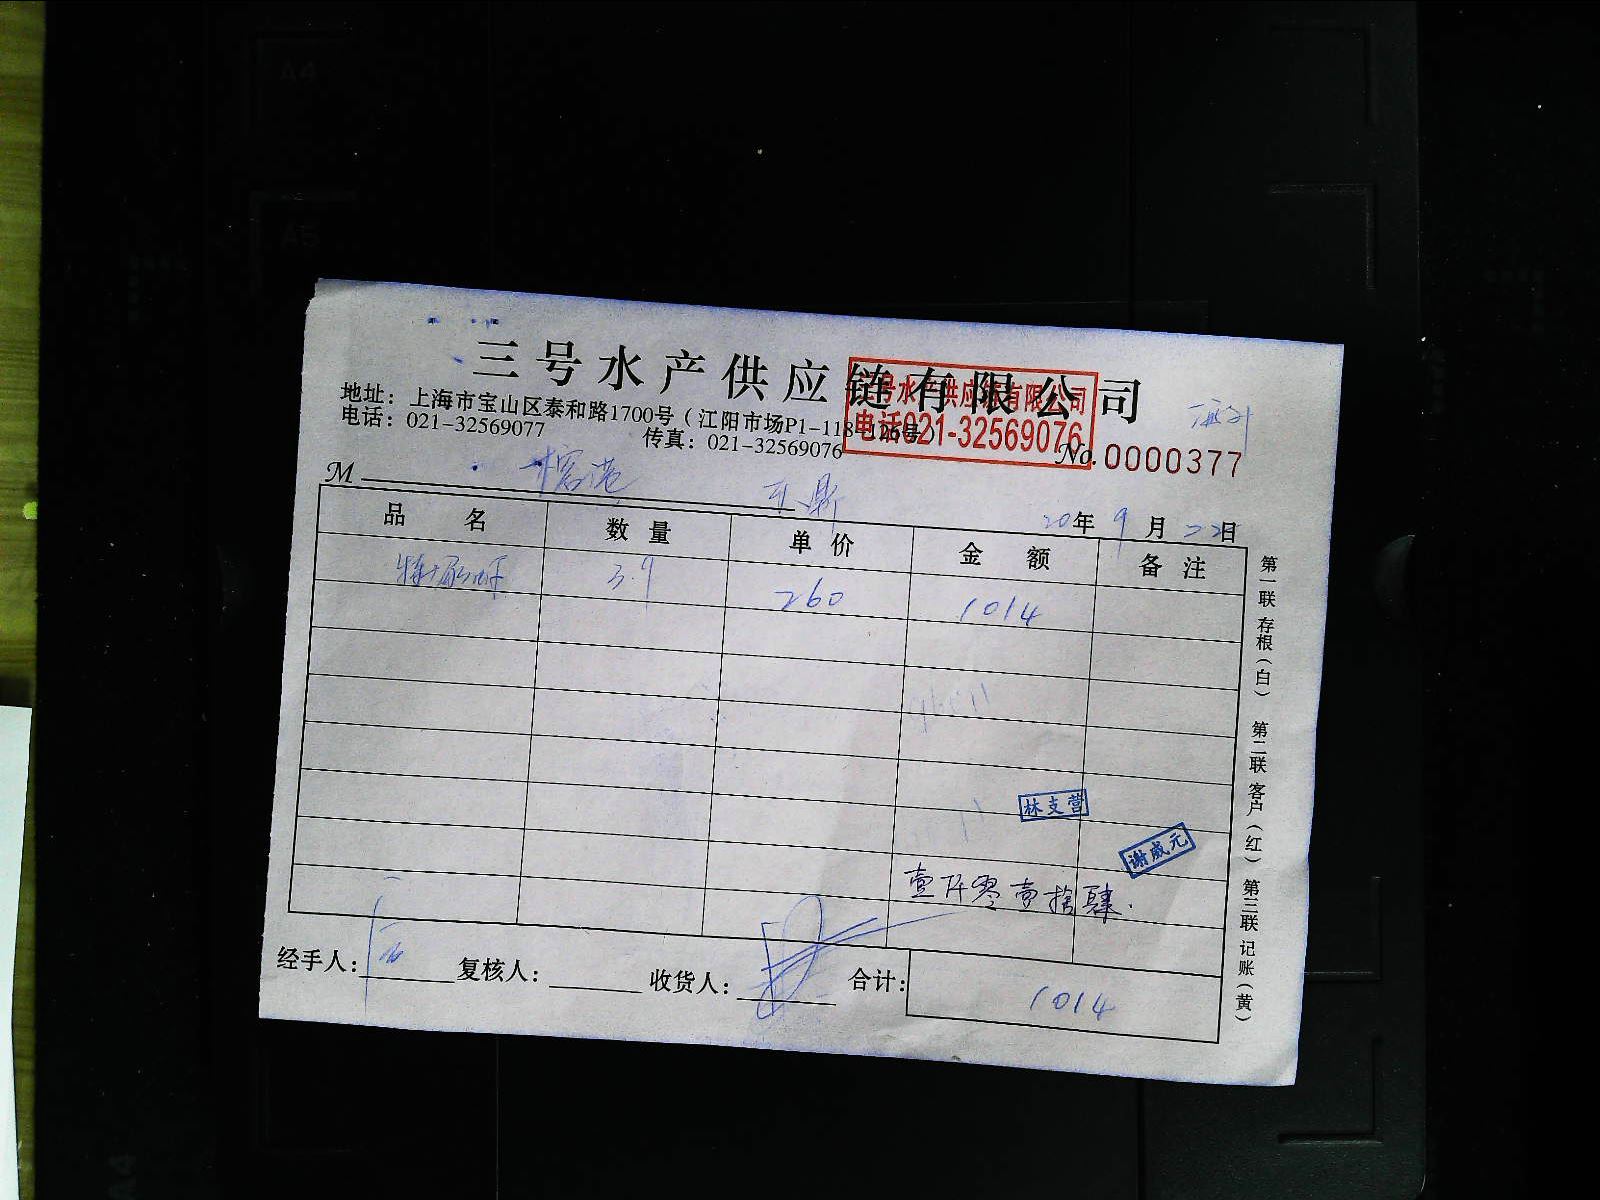 三号水产供应链有限公司
三号水产供应链有限公司
电话021-32569076
地址：上海市宝山区泰和路1700号（江阳市场P1-118-126号）
电话：021-32569077 传真：021-32569076
No.0000377
M
20年9月22日
品名 数量 单价 金额 备注
3.9 260 1014
林支营
谢威元
壹仟零壹拾肆.
经手人： 复核人： 收货人： 合计：1014
第一联 存根（白） 第二联 客户（红） 第三联 记账（黄）
A4
A5